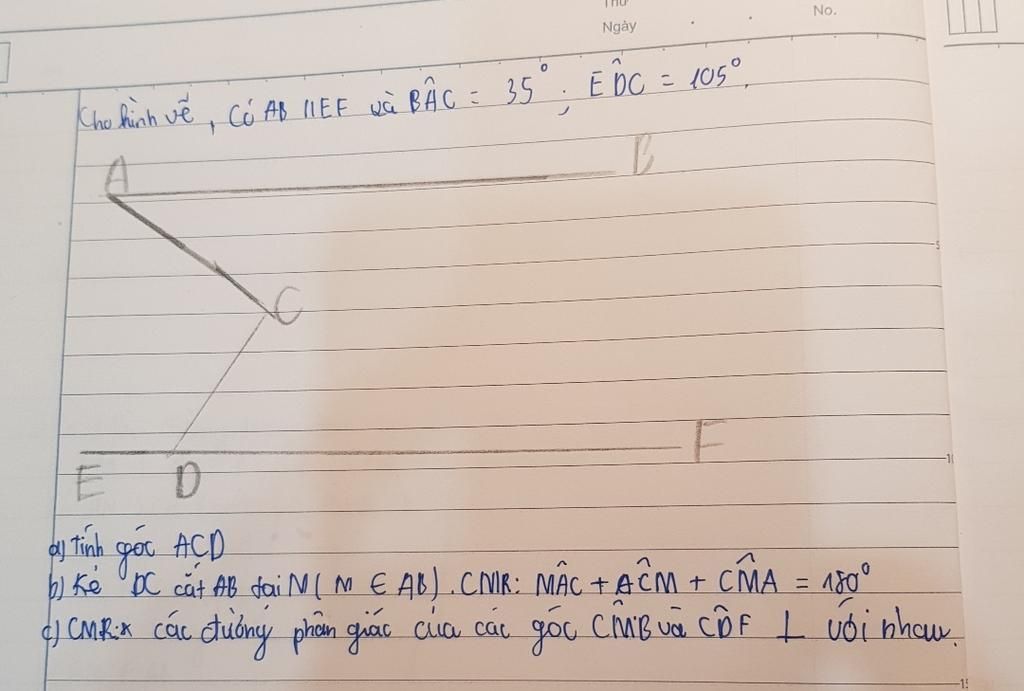 Thứ
Ngày
No.
Cho hình vẽ, Có AB // EF và BÂC = 35°; ED̂C = 105°.
A
B
C
E
D
F
a) Tính góc ACD
b) Kẻ DC cắt AB tại M (M ∈ AB). CMR: MÂC + AĈM + CM̂A = 180°
c) CMR: các đường phân giác của các góc CM̂B và CD̂F ⊥ với nhau.
5
10
15